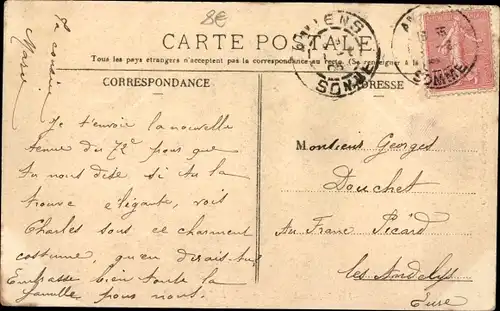 Ta cousine
Marie
8€
AMIENS
SOMME
CARTE POSTALE
Tous les pays étrangers n'acceptent pas la correspondance au recto. (Se renseigner à la
CORRESPONDANCE
ADRESSE
SOMME
Je t'envoie la nouvelle
tenue du 72e pour que
tu nous dise si tu la
trouve élégante, vois
Charles sous ce charment
costume, qu'en dirais-tu?
Embrasse bien toute la
famille pour nous.
Monsieur Georges
Douchet
Au Franc Picard
les Andelys
Eure